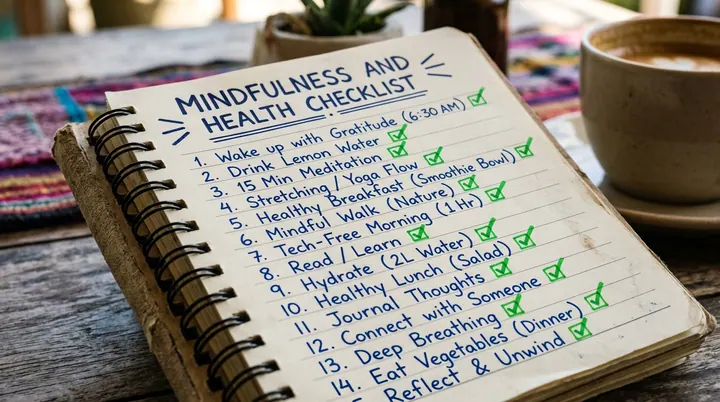 MINDFULNESS AND
HEALTH CHECKLIST
1. Wake up with Gratitude (6:30 AM)
2. Drink Lemon Water
3. 15 Min Meditation
4. Stretching / Yoga Flow
5. Healthy Breakfast (Smoothie Bowl)
6. Mindful Walk (Nature)
7. Tech-Free Morning (1 Hr)
8. Read / Learn
9. Hydrate (2L Water)
10. Healthy Lunch (Salad)
11. Journal Thoughts
12. Connect with Someone
13. Deep Breathing
14. Eat Vegetables (Dinner)
5. Reflect & Unwind